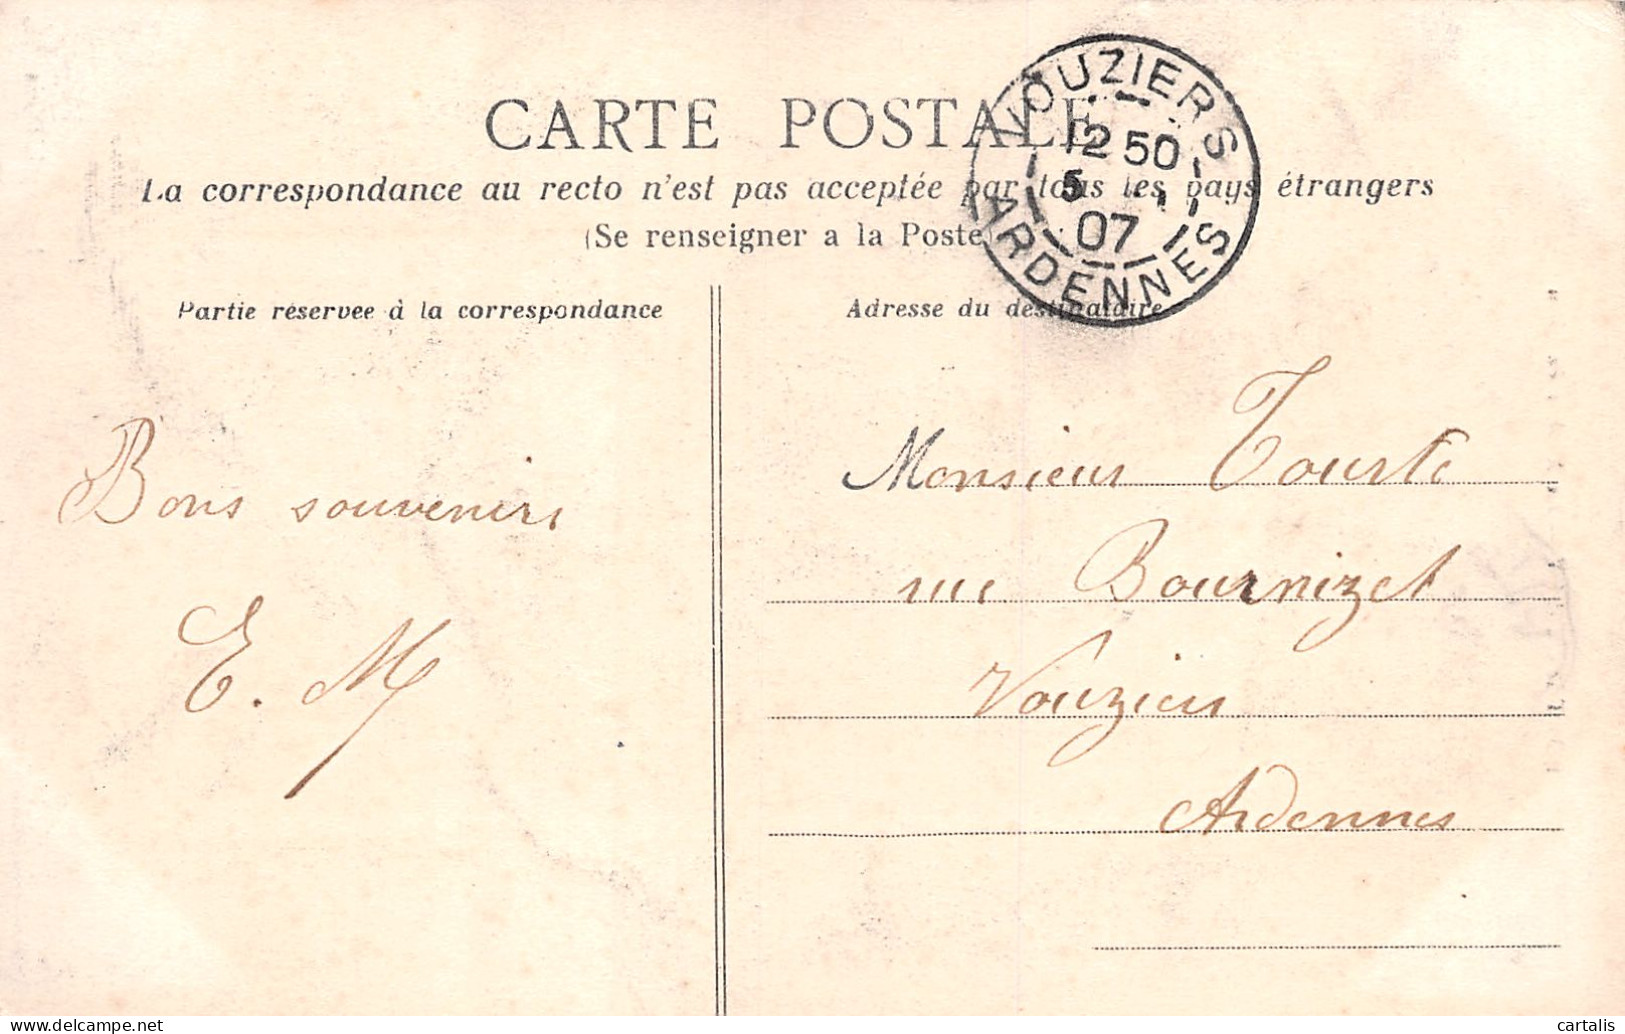 CARTE POSTALE
La correspondance au recto n'est pas acceptée par tous les pays étrangers
(Se renseigner a la Poste)
VOUZIERS
12 50
5
07
ARDENNES
Partie réservee à la correspondance
Adresse du destinataire
Bons souvenirs
E. M
Monsieur Tourte
rue Bournizet
Vouziers
Ardennes
delcampe.net
cartalis